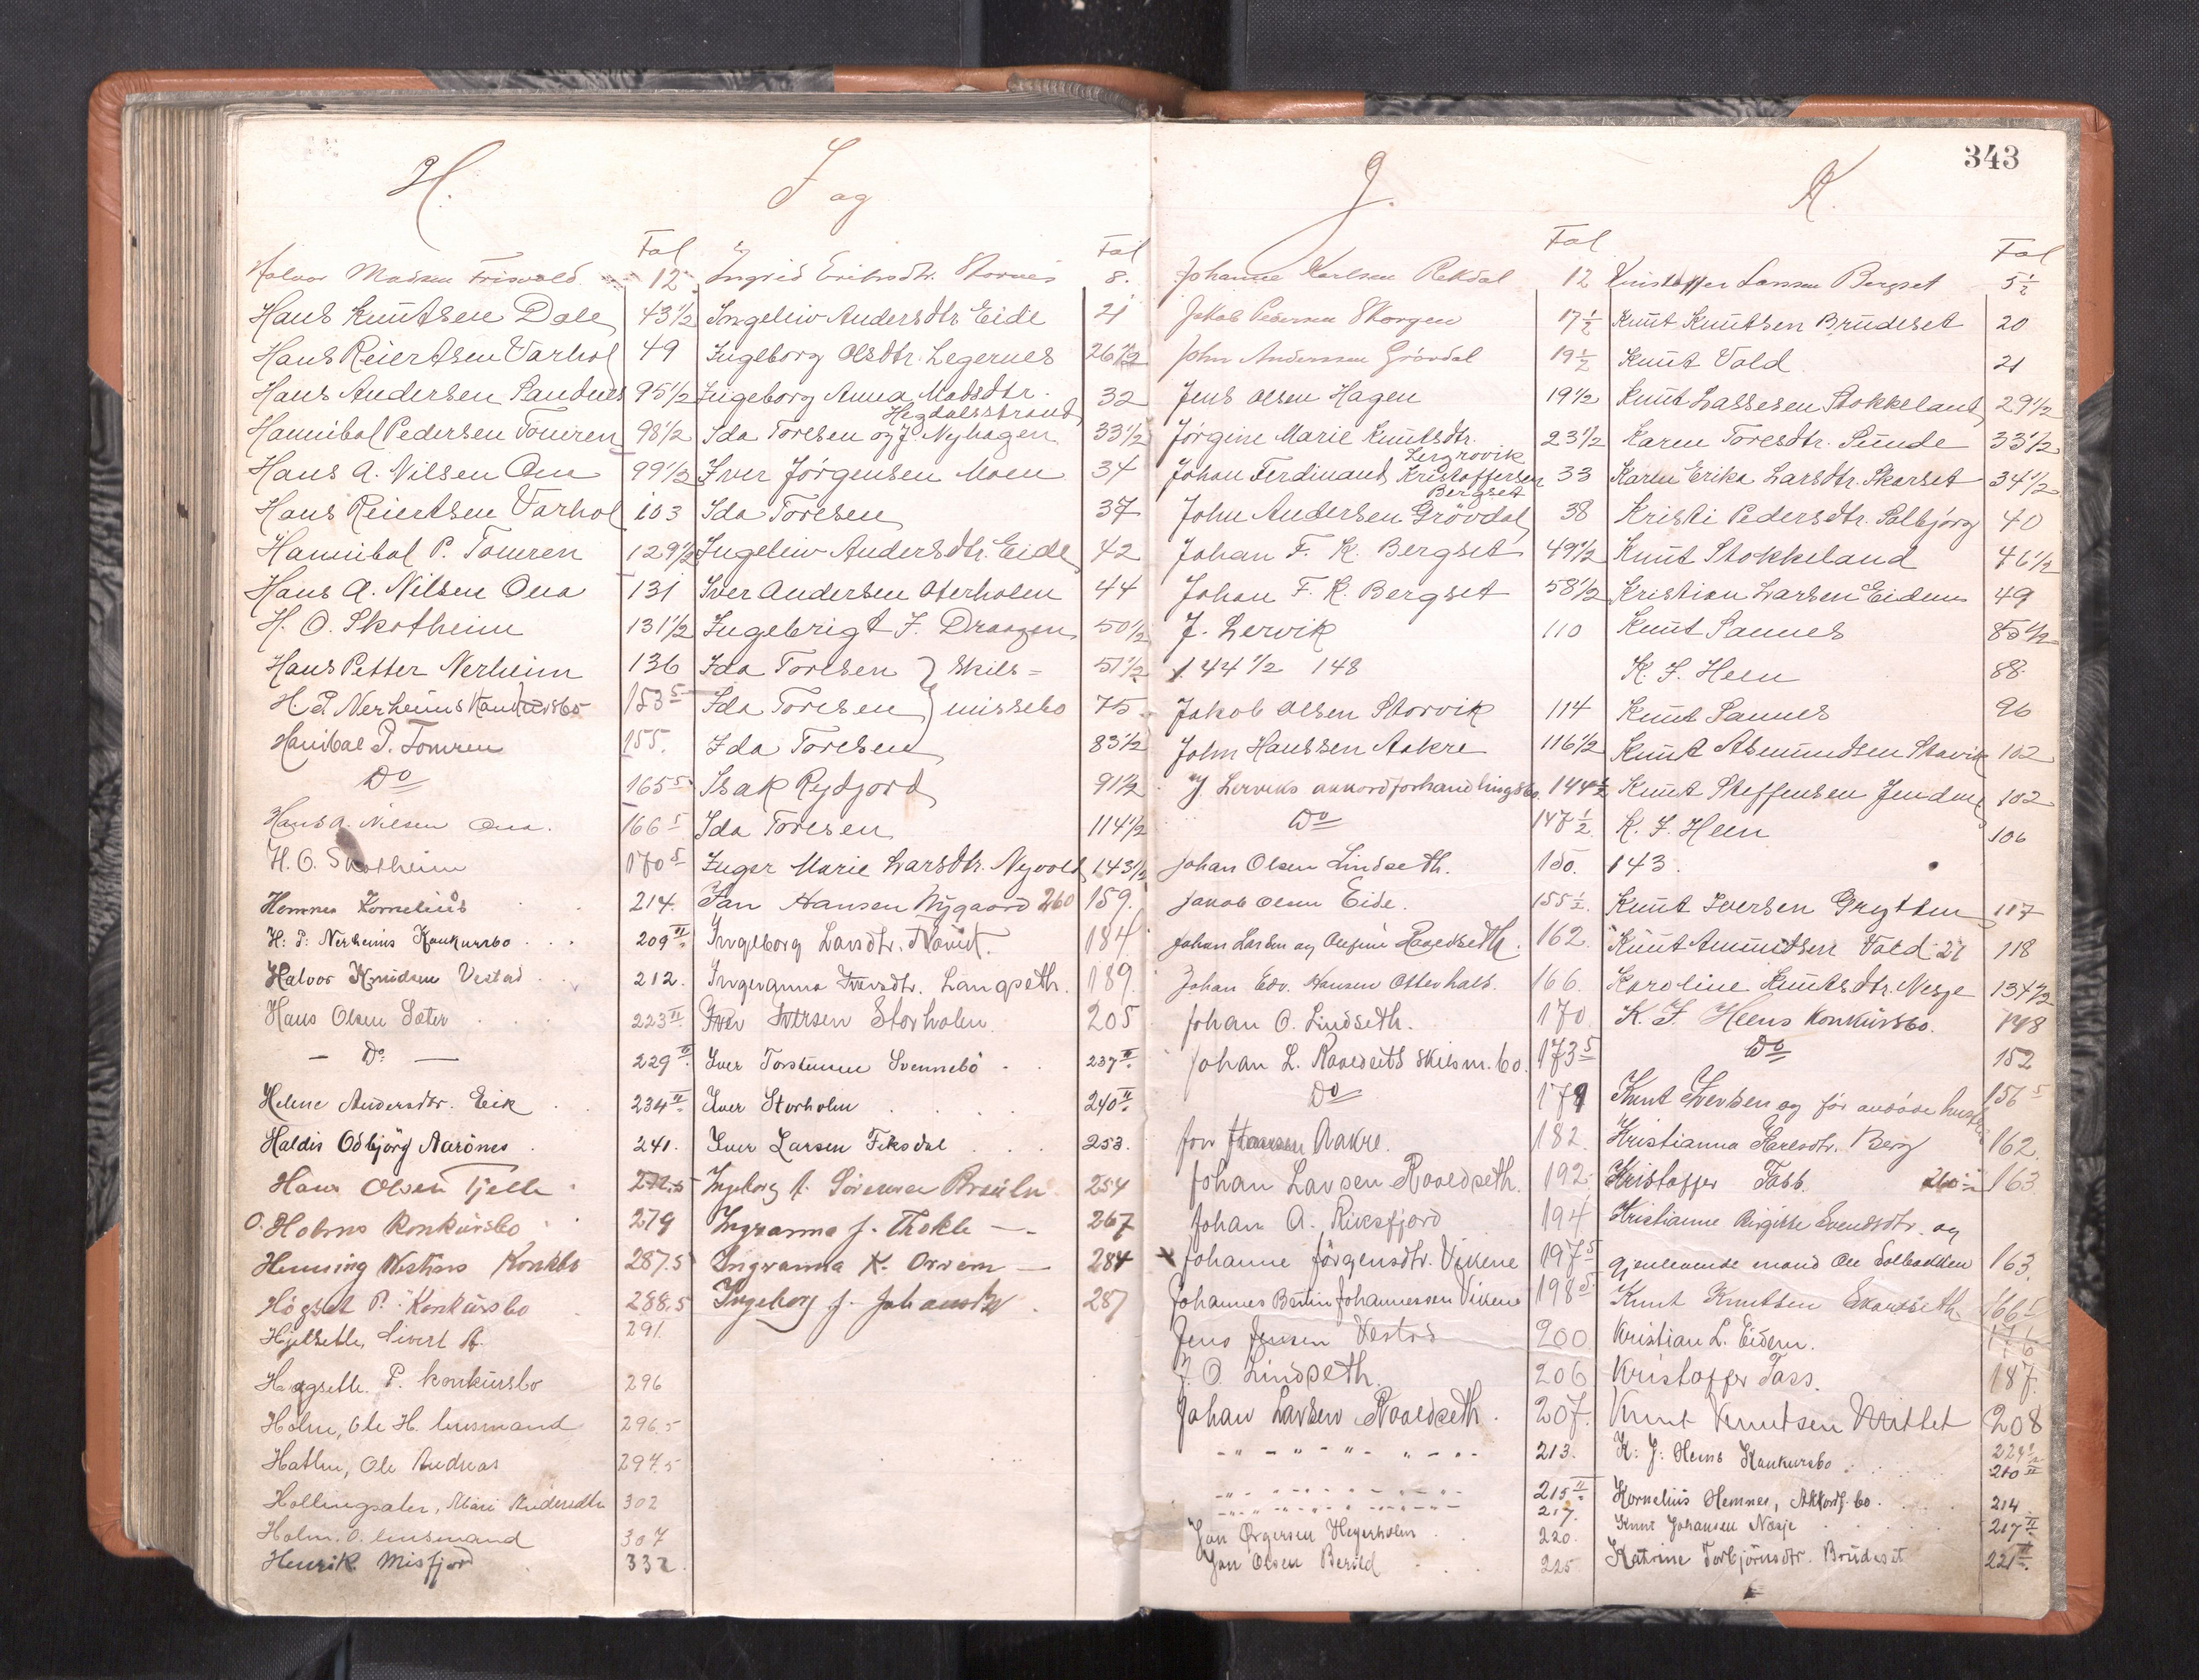 343
H.
Fol
Halvor Madsen Frisvold 12
Hans Knutsen Dale 43 1/2
Hans Reiertsen Varhol 49
Hans Andersen Sandnes 95 1/2
Hannibal Pedersen Tomren 98 1/2
Hans A. Nilsen Ona 99 1/2
Hans Reiertsen Varhol 103
Hannibal P. Tomren 129 1/2
Hans A. Nilsen Ona 131
H. O. Skotheim 131 1/2
Hans Petter Nerheim 136
H. P. Nerheims Konkursbo 153 5
Hanibal P. Tomren 155.
Do 165 5
Hans A. Nilsen Ona. 166 5
H. O. Skotheim 170 5
Hemnes Kornelius 214.
H: P: Nerheims Konkursbo 209 II
Halvor Knudsen Vestad 212.
Hans Olsen Sæter 223 II
— Do — 229 II
Helene Andersdtr. Eik 234 II
Haldis Odbjörg Aarönes 241.
Hans Olsen Tjelle
O. Holms Konkursbo 279
Henning Konkbo 287.5
Högset P. Konkursbo 288.5
Hjelseth, Sivert A. 291.
Hagseth P. konkursbo 296
Holm, Ole H. lensmand 296.5
Hatlen, Ole Andreas 297.5
Hollingsæter, Mari Andersdtr 302
Holm. O. lensmand 307
Henrik Misfjord 332.
I og
Fol
Ingrid Eriksdtr. Stornes 8.
Ingeliv Andersdtr Eide 21
Ingeborg Olsdtr. Legernes 26 1/2
Ingeborg Anna Madsdtr. 32
Hegdalsstrand
Ida Toresen og J. Nyhagen 33 1/2
Iver Jörgensen Moen 34
Ida Toresen 37
Ingeliv Andersdtr. Eide 42
Iver Andersen Oterholm 44
Ingebrigt J. Draagen 50 1/2
Ida Toresen } Skils= 51 1/2
Ida Toresen } missebo 75
Ida Toresen 83 1/2
Isak Rejdjord 91 1/2
Ida Toresen 114 1/2
Inger Marie Larsdtr. Nyvold 143 1/2
Jan Hansen Nygaard 260 159.
Ingeborg Larsdtr. 184
Ingeranna Iversdtr. Langseth. 189
Iver Iversen Storholm 205
Iver Torstensen Svennebö 237 II
Iver Storholm 240 II
Iver Larsen Fiksdal 253.
Ingeborg 254
Ingvanna J. Thokle — 267
Ingvanna K. Orvem — 284
Ingeborg J. 287
J.
Fol
Johanne Karlsen Rekdal 12
Jakob Pedersen Skorgen 17 1/2
John Andersen Grövdal 19 1/2
Jens Olsen Hagen 19 1/2
Jörgine Marie Knutsdtr. 23 1/2
Lergrovik
Johan Ferdinand Kristoffersen 33
Bergset
John Andersen Grövdal 38
Johan F. K. Bergset 49 1/2
Johan F. K. Bergset 58 1/2
J. Lervik 110
144 1/2 148
Jakob Olsen Storvik 114
John Hanssen Aakre 116 1/2
J. Lerviks akkordforhandlingsbo. 144 1/2
Do 147 1/2
Johan Olsen Lindseth. 150.
Jakob Olsen Eide. 155 1/2
Johan Larsen og 162.
Johan Edv. Hansen Otterhals. 166.
Johan O. Lindseth. 170
Johan L. Rovedseths skilsm. bo. 173 5
Do 179
Jon Hansen Aakre. 182.
Johan Larsen Rovedseth. 192.
Johan A. Riksfjord 194
x Johanne Jörgensdtr. Vikene 197 5
Johannes Bertin Johannessen Vikene 198 5
Jens Jensen Vestad 200
J. O. Lindseth. 206
Johan Larsen Rovedseth. 207.
- " - " - " - 213.
- " - " - " - 215 II
- " - " - " - 217.
Jon Ørgersen Hegerholm 220.
Jon Olsen Berild 225
K.
Fol
Kristoffer Larsen Bergset 5 1/2
Knut Knutsen Brudeset 20
Knut Vold 21
Knut Lassesen Stokkeland 29 1/2
Karen Toresdtr. Sunde 33 1/2
Karen Erika Larsdtr. Skarset 34 1/2
Kristi Pedersdtr. Solbjörg 40
Knut Stokkeland 46 1/2
Kristian Larsen Eidem 49
Knut Sannes 85 1/2
K. J. Heen 88
Knut Sannes 96
Knut Asmundsen Stavik 102
Knut Steffensen Jendem 102
K. J. Heen 106
143.
Knut Iversen Grytten 117
Knut Amundsen Vold 21 118
Karoline Knutsdtr. Nesje 134 1/2
K. J. Heens Konkursbo. 148
Do 152
Knut Iversen og før avdöde hustru 156 5
Kristianna Karlsdtr. Berg 162.
Kristoffer Tass. 163
Kristianne Birgitte Evendsdtr. og
gjenlevende mand Ole Solbakken 163.
Knut Knutsen 166 5
Kristian L. Eidem. 176
Kristoffer Tass. 187.
Knut Knutsen Mittet 208
K: J: Heens Konkursbo 224 1/2
210 II
Kornelius Hemnes, Akkordf. bo. 214
Knut Johansen Nesje 217 II
Katrine Torbjörnsdtr. Brudeset 221 II